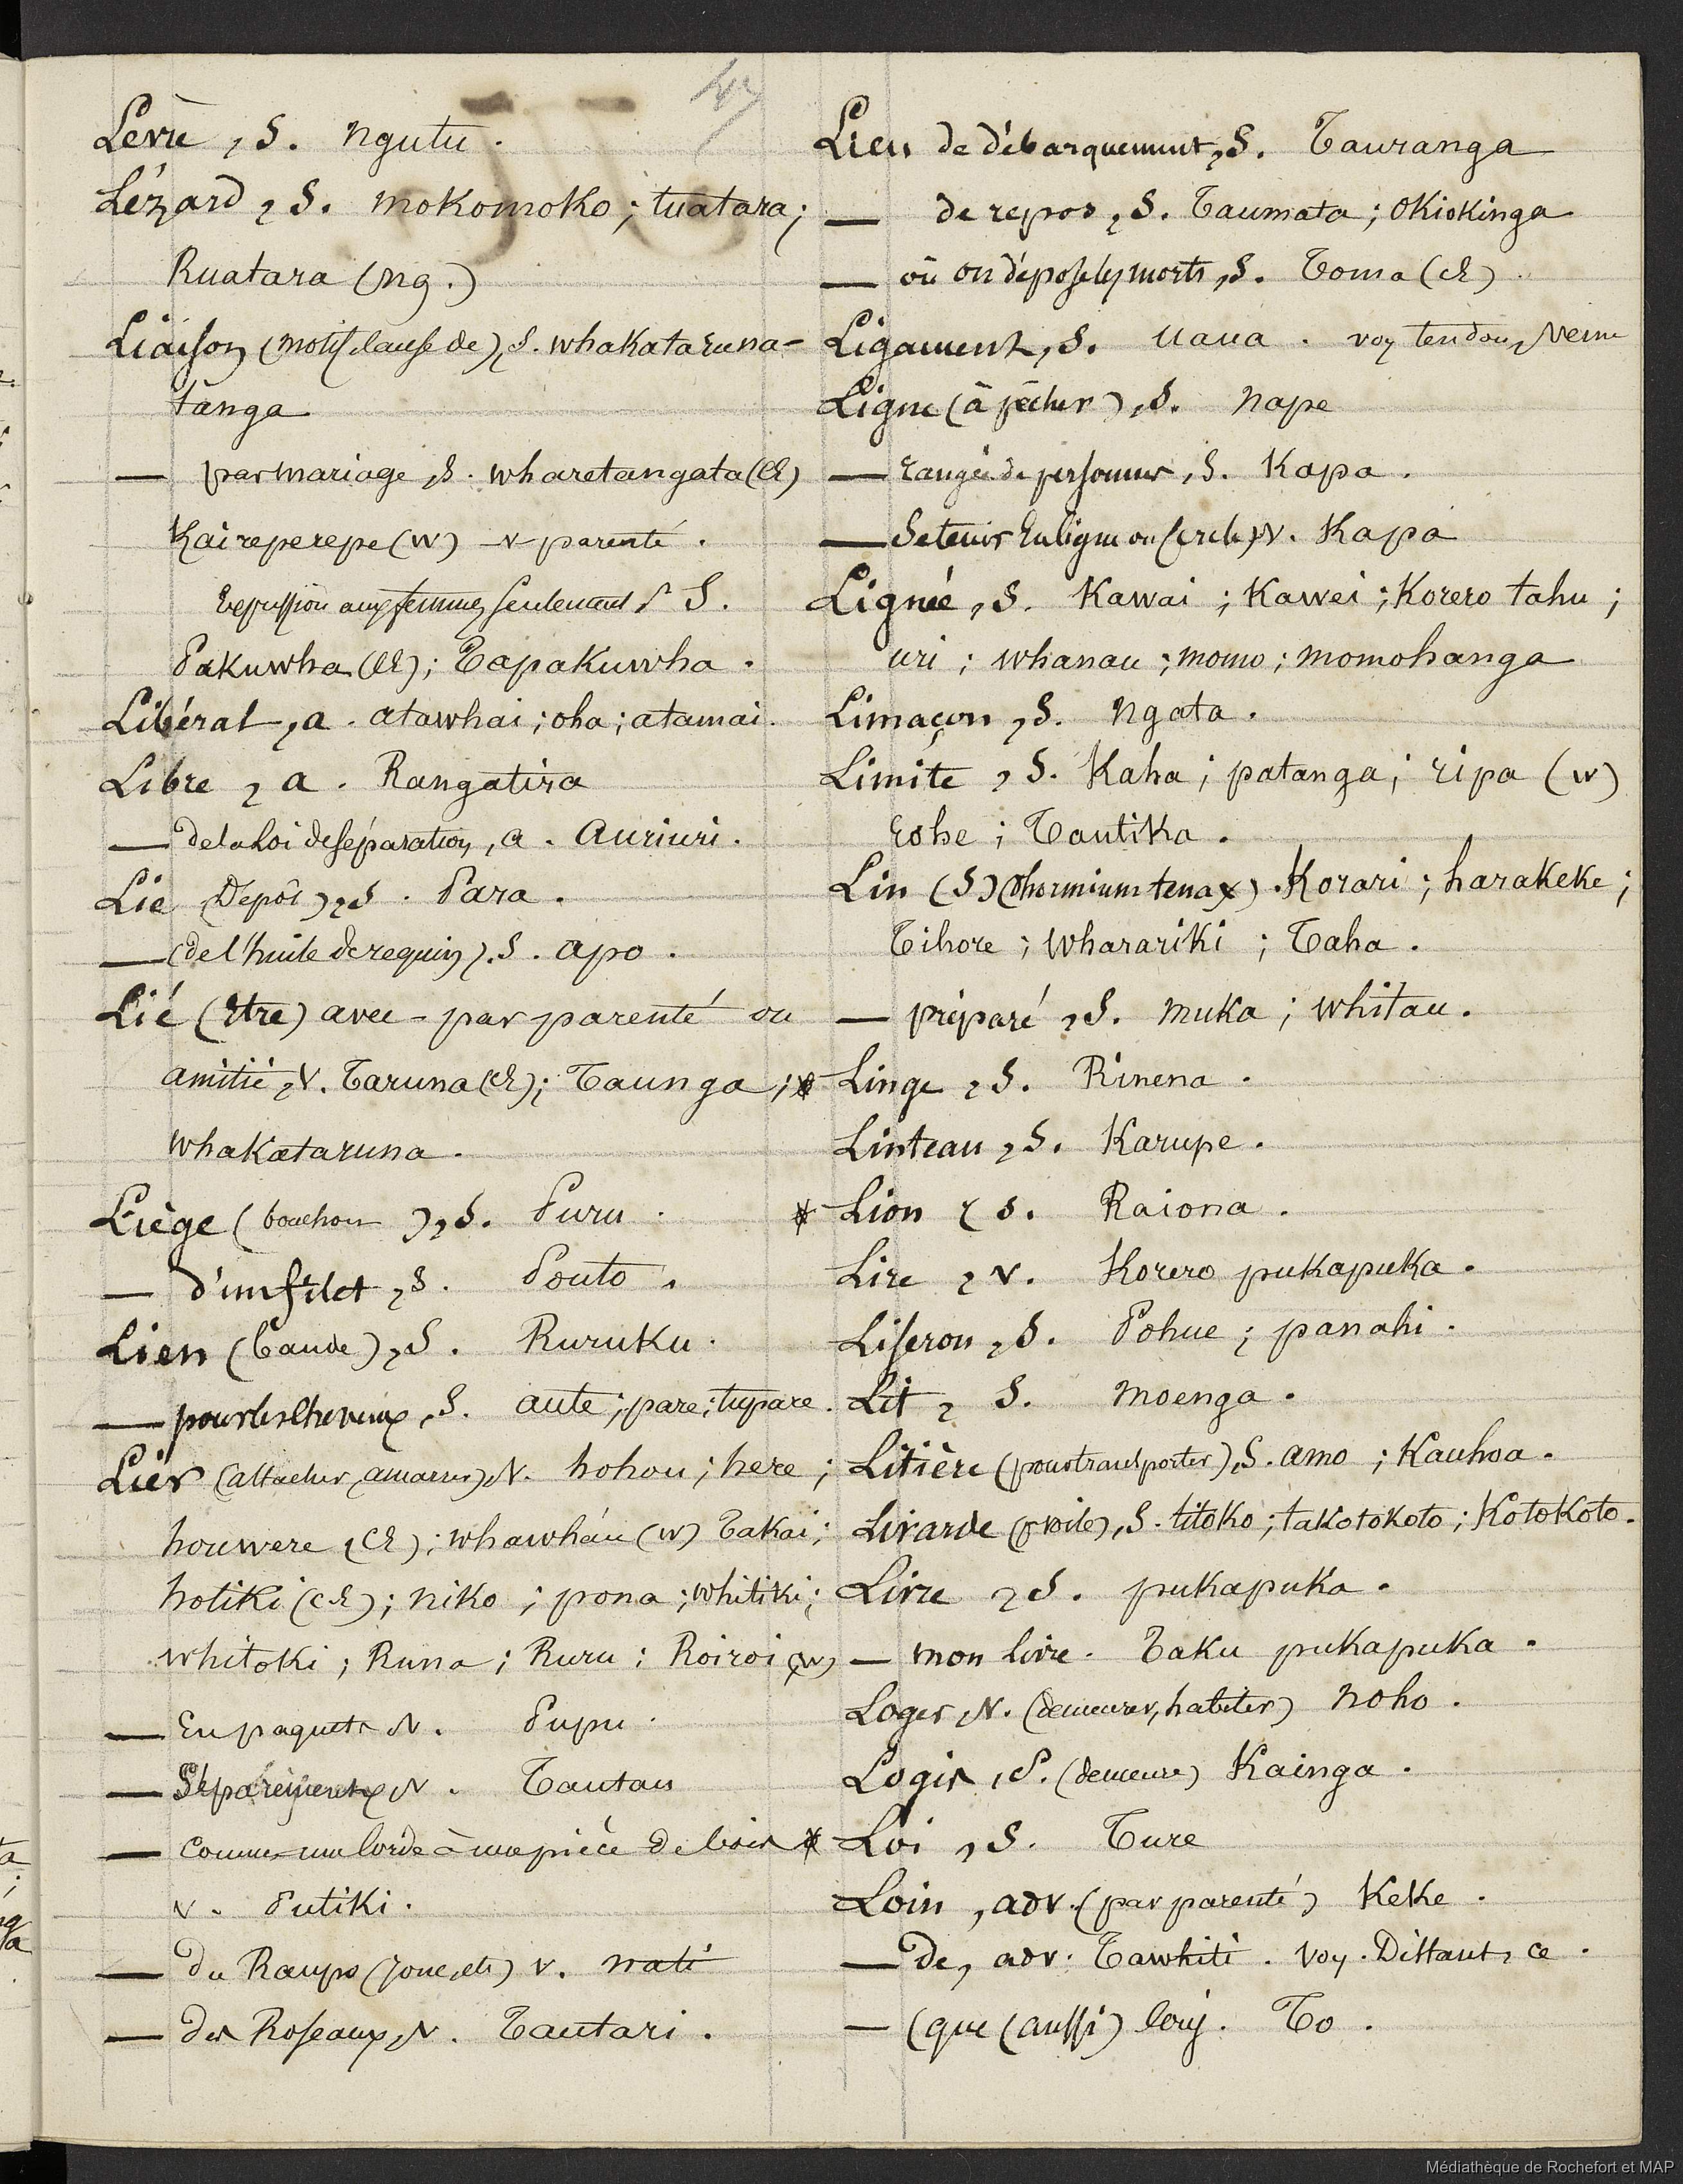 47
Levre, S. Ngutu.
Lézard, S. mokomoko; tuatara;
Ruatara (ng.)
Liaison (motif, cause de), S. whakataruna-
tanga
— par mariage, S. wharetangata (CE)
Kaireperepe (W) - v parenté.
aux femmes seulement S.
Pakuwha (CE); Tapakuwha.
Libéral, a. atawhai; oha; atamai.
Libre, a. Rangatira
— de la Loi de séparation, a. Auriuri.
Lie (Dépôt), S. Para.
— (de l'huile de requin), S. apo.
Lié (Etre) avec - par parenté ou
amitié, V. Taruna (CE); Taunga;
whakataruna.
Liège (bouchon), S. Puru.
— d'un filet, S. Pouto.
Lien (bande), S. Ruruku.
— pour les cheveux, S. aute; pare; tupare.
Lier (attacher, amarrer), V. hohou; here;
houwere (CE); whawháu (W) Takai;
hotiki (CE); niko; pona; whitiki;
whitoki; Runa; Ruru; Roiroi (W)
— En paquets V. Pupu.
— V. Tautau
— comme une corde à une pièce de bois
v. Putiki.
— du Raupo (jonc, etc) v. nati
— des Roseaux, V. Tautari.
Lieu de débarquement, S. Tauranga
— de repos, S. Taumata; Okiokinga
— où on dépose les morts, S. Toma (CE)
Ligament, S. Uaua. voy tendon, Veine
Ligne (à pêcher), S. Nape
— rangée de personnes, S. Kapa.
— Se tenir en ligne ou (cercle) V. Kapa
Lignée, S. Kawai; Kawei; Korero tahu;
uri; whanau; momo; momohanga
Limaçon, S. Ngata.
Limite, S. Kaha; patanga; ripa (W)
rohe; Tautika.
Lin (S) (Phormium tenax). Korari; harakeke;
Tihore; wharariki; Taha.
— préparé, S. muka; whitau.
* Linge, S. Rinena.
Linteau, S. Karupe.
* Lion, S. Raiona.
Lire, V. Korero pukapuka.
Liseron, S. Pohue; panahi.
Lit, S. moenga.
Litière (pour transporter), S. amo; Kauhoa.
Livarde (voile), S. titoko; takotokoto; Kotokoto.
Livre, S. pukapuka.
— mon livre. Taku pukapuka.
Loger, V. (demeurer, habiter) noho.
Logis, S. (demeure) Kainga.
* Loi, S. Ture
Loin, adv. (par parenté) Keke.
— de, adv. Tawhiti. Voy. Distant, ce.
— (que (aussi) Conj. To.
Médiathèque de Rochefort et MAP